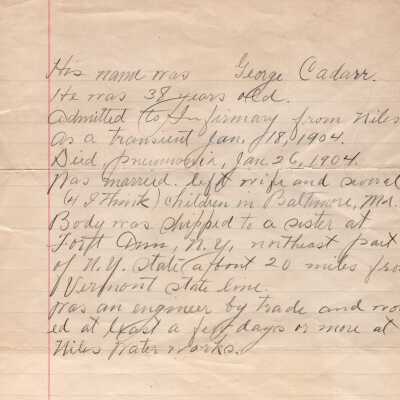 His name was George Cadarr.
He was 38 years old.
Admitted to Infirmary from Niles
as a transient Jan. 18, 1904.
Died, pneumonia, Jan 26, 1904.
Was married. left wife and several
(4 I think) children in Baltimore, Md.
Body was shipped to a sister at
Fort Ann, N.Y., northeast part
of N.Y. state (about 20 miles fro
Vermont state line.
Was an engineer by trade and wor
ed at least a few days or more at
Niles Water works.